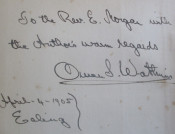 To the Rev. E. Morgan with
the Author's warm regards
Owen S. Watkins
April 4. 1905
Ealing